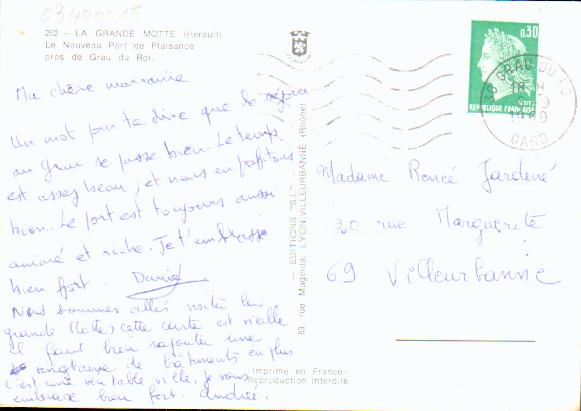 03400015
262 - LA GRANDE MOTTE (Hérault)
Le Nouveau Port de Plaisance
près de Grau du Roi.
Ma chère marraine
Un mot pour te dire que le séjour
au Grau se passe bien. Le temps
est assez beau, et nous en profitons
bien. Le port est toujours aussi
animé et riche. Je t'embrasse
bien fort. Daniel
Nous sommes allés visiter la
grande Motte, cette carte est vieille
il faut bien rajouter une
vingtaine de bâtiments en plus
c'est une véritable ville, je vous
embrasse bien fort. Andrée.
— EDITIONS "S.L." —
63, rue Magenta, LYON-VILLEURBANNE (Rhône)
Imprimé en France-
Reproduction interdite
0,30
30 GRAU DU ROI
18H
1969
GARD
Madame Renée Jardené
20 rue Marguerite
69 Villeurbanne